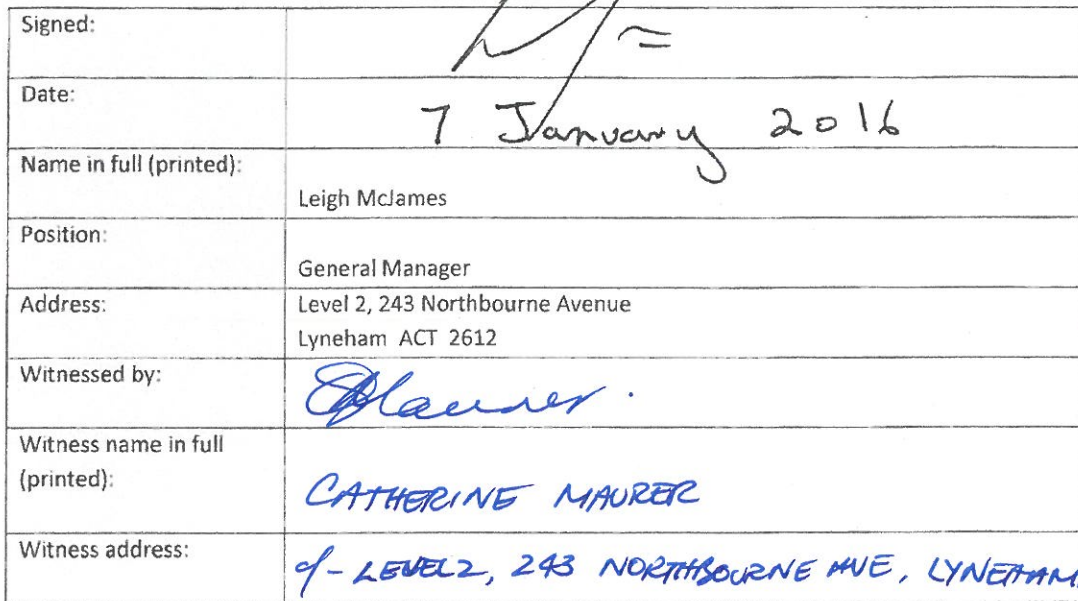 Signed:
Date: 7 January 2016
Name in full (printed):
Leigh McJames
Position:
General Manager
Address: Level 2, 243 Northbourne Avenue
Lyneham ACT 2612
Witnessed by:
Witness name in full
(printed):
CATHERINE MAURER
Witness address: c/- LEVEL 2, 243 NORTHBOURNE AVE, LYNEHAM